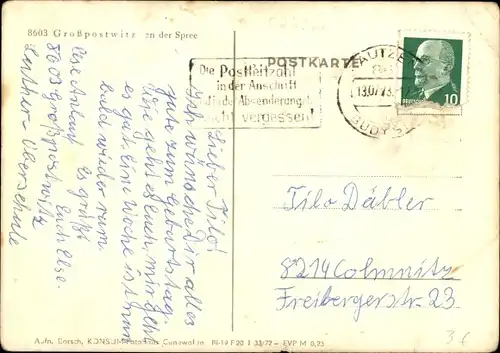 8603 Großpostwitz an der Spree
POSTKARTE
Die Postleitzahl
in der Anschrift
und in der Absenderangabe
nicht vergessen!
BAUTZEN
13.07.73
BUDYŠ
10
Lieber Tilo!
Ich wünsche Dir alles
gute zum Geburtstag.
Wie geht es euch, mir geht
es gut. Eine Woche ist nun
bald wieder rum
Es grüßt
Euch Elser
8603 Großpostwitz
Lessing-Oberschule
Tilo Däbler
8214 Colmnitz
Freibergerstr. 23
Aufn. Dorsch, KONSUM-Fotohaus Cunewalde III-19 F 20 I 33/72 - EVP M 0,25
3€